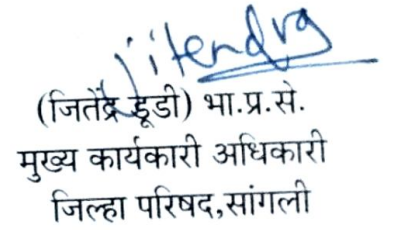 jitendra
(जितेंद्र डूडी) भा.प्र.से.
मुख्य कार्यकारी अधिकारी
जिल्हा परिषद,सांगली